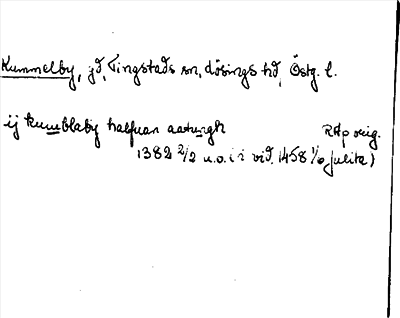 Kummelby, jd, Tingstads sn, Lösings hd, Östg. l.
ij kumblaby halfuan aatungh RAp orig.
1382 2/2 u.o. i vid. 1458 1/6 Julita)